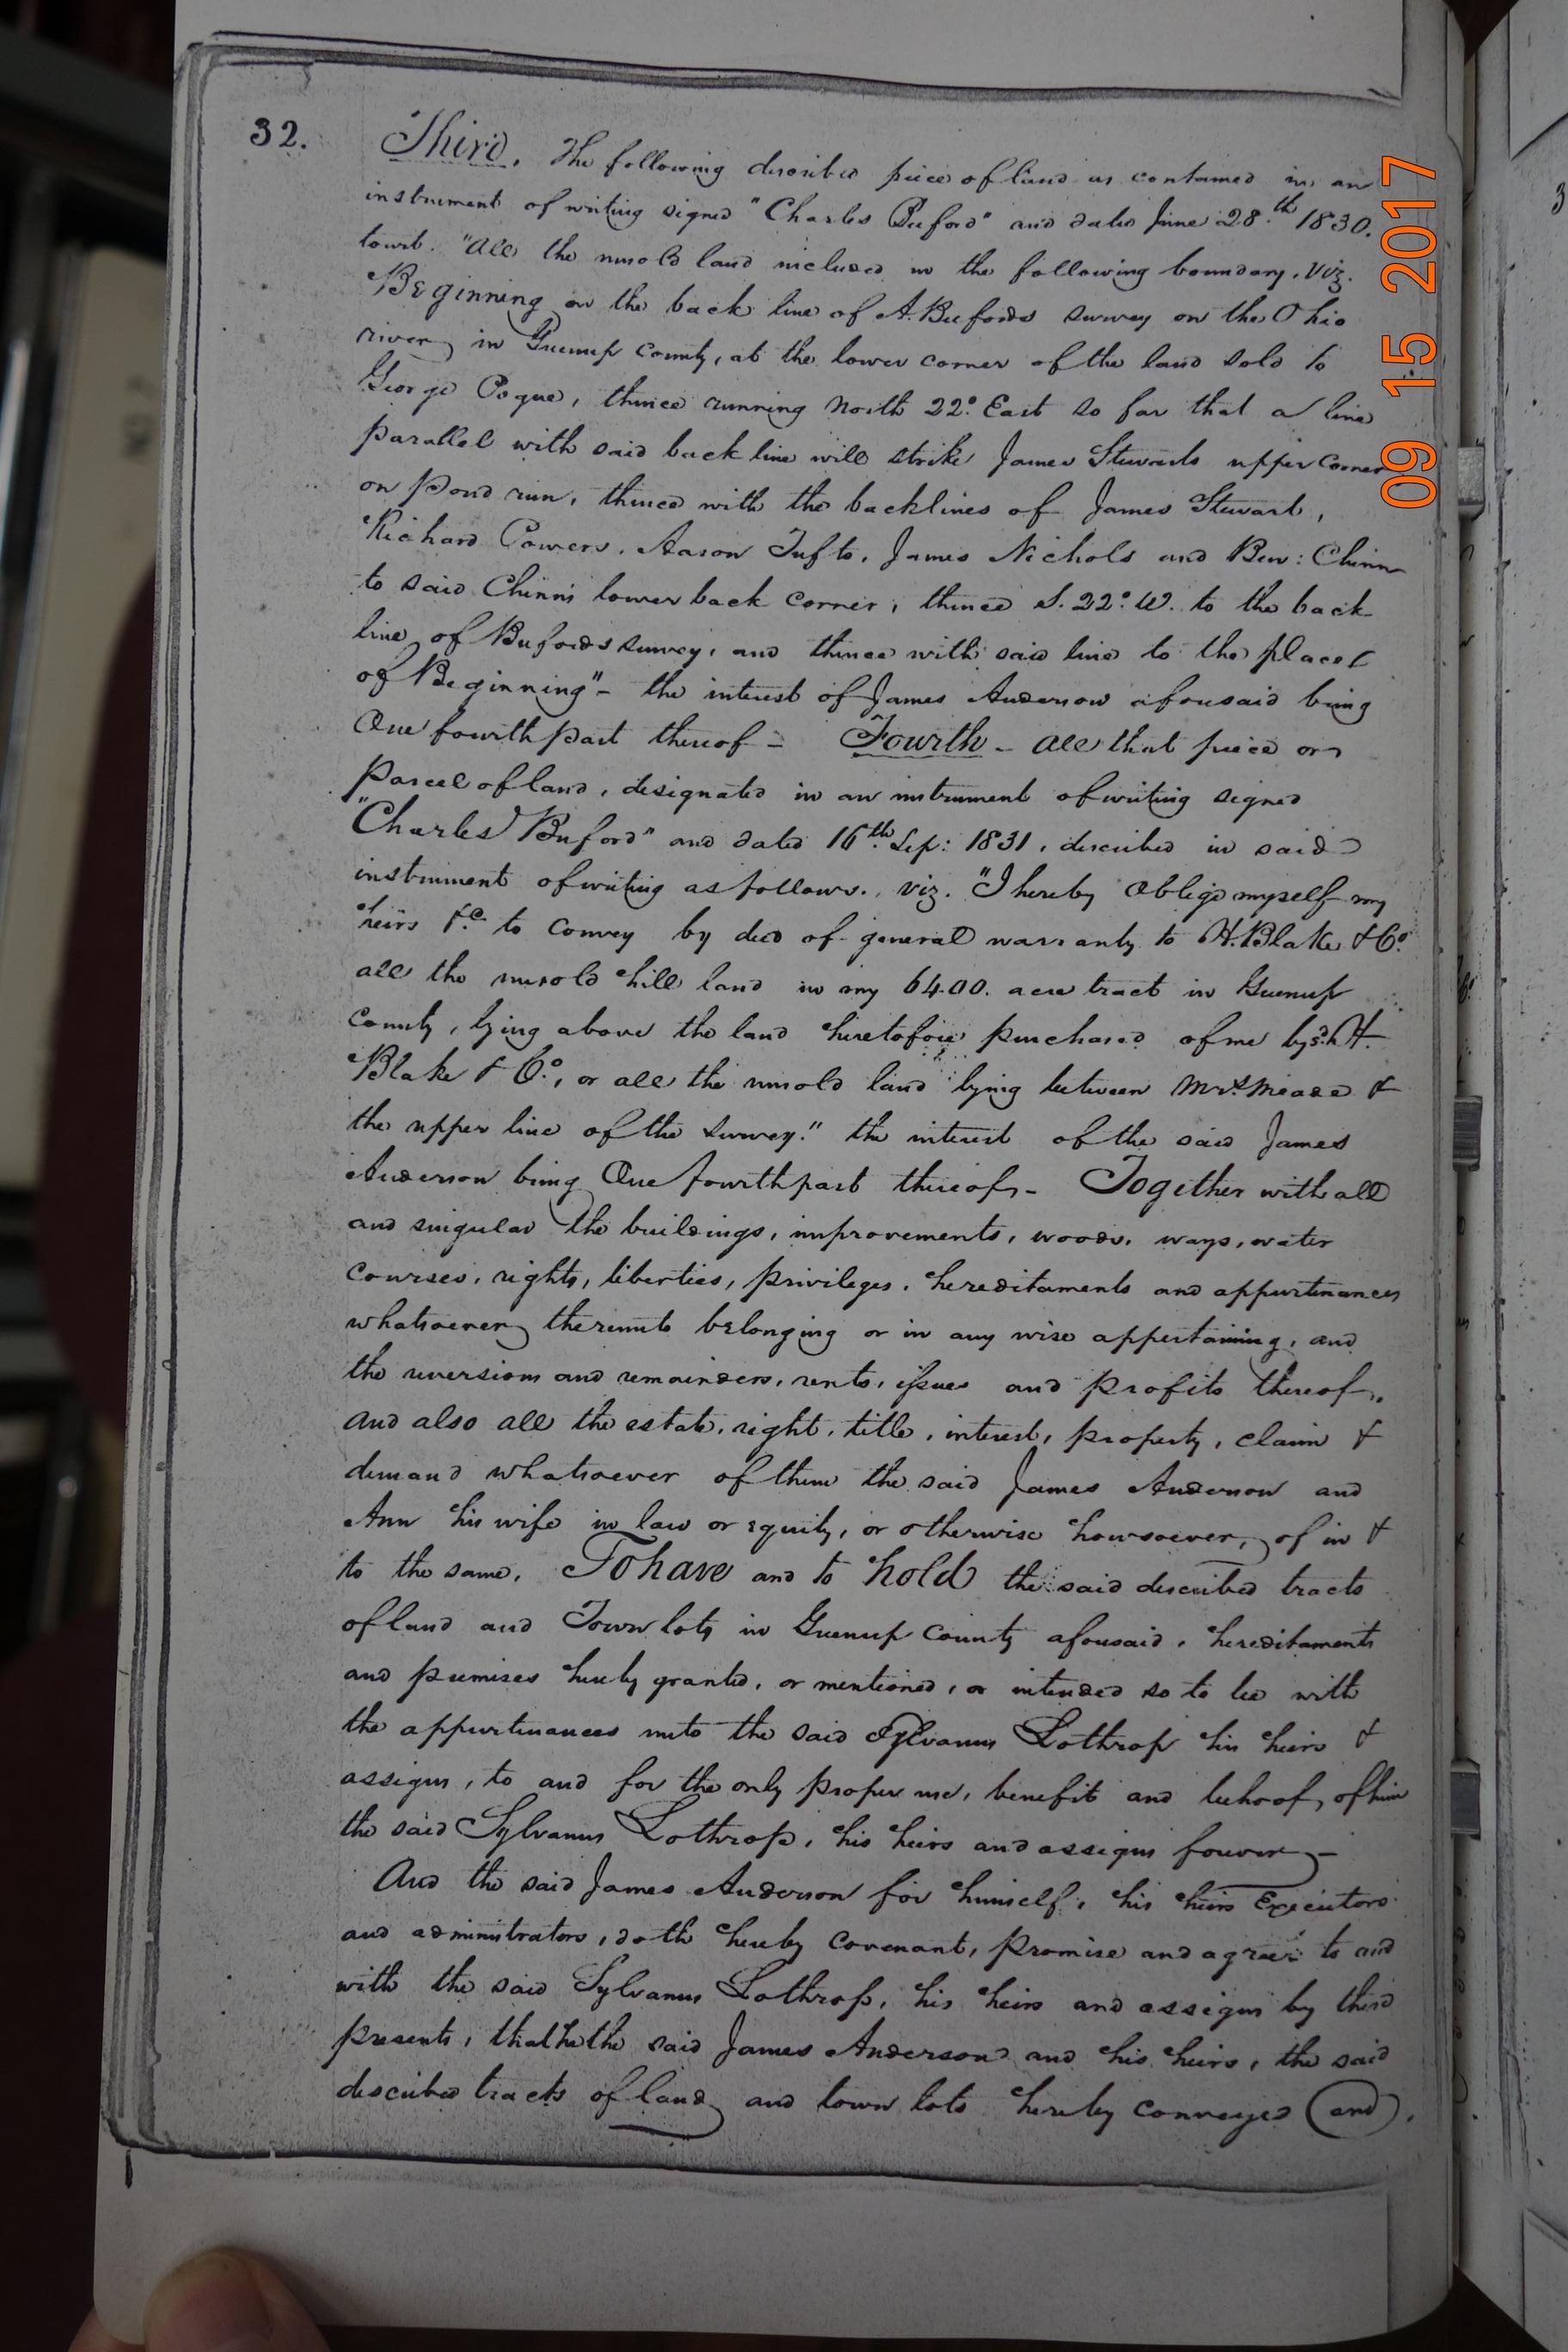 32.
Third. The following described piece of land as contained in an
instrument of writing signed "Charles Buford" and dated June 28.th 1830.
towit. "All the unsold land included in the following boundary, viz.
Beginning on the back line of A. Bufords survey on the Ohio
river in Greenup County, at the lower corner of the land sold to
George Pogue, thence running North 22° East so far that a line
parallel with said back line will strike James Stewarts upper corner
on Pond run, thence with the backlines of James Stewart,
Richard Powers, Aaron Tufts, James Nichols and Ben: Chinn
to said Chinn's lower back corner, thence S. 22° W. to the back
line of Bufords survey, and thence with said line to the place
of Beginning" - the interest of James Anderson aforesaid being
One fourth part thereof - Fourth - All that piece or
parcel of land, designated in an instrument of writing signed
"Charles Buford" and dated 16th Sep: 1831, described in said
instrument of writing as follows, viz. "I hereby oblige myself my
heirs &c. to convey by deed of general warranty to H. Blake & Co.
all the unsold hill land in my 6400. acre tract in Greenup
County, lying above the land heretofore purchased of me by sd. H.
Blake & Co., or all the unsold land lying between Mrs. Meade &
the upper line of the survey." the interest of the said James
Anderson being One fourth part thereof - Together with all
and singular the buildings, improvements, woods, ways, water
courses, rights, liberties, privileges, hereditaments and appurtenances
whatsoever thereunto belonging or in any wise appertaining, and
the reversions and remainders, rents, issues and profits thereof,
and also all the estate, right, title, interest, property, claim &
demand whatsoever of them the said James Anderson and
Ann his wife in law or equity, or otherwise howsoever, of in &
to the same. To have and to hold the said described tracts
of land and Town lots in Greenup County aforesaid, hereditaments
and premises hereby granted, or mentioned, or intended so to be with
the appurtenances unto the said Sylvanus Lothrop his heirs &
assigns, to and for the only proper use, benefit and behoof, of him
the said Sylvanus Lothrop, his heirs and assigns forever -
And the said James Anderson for himself, his heirs Executors
and administrators, doth hereby covenant, promise and agree to and
with the said Sylvanus Lothrop, his heirs and assigns by these
presents, that he the said James Anderson and his heirs, the said
described tracts of land and town lots hereby conveyed (and).
09 15 2017
3